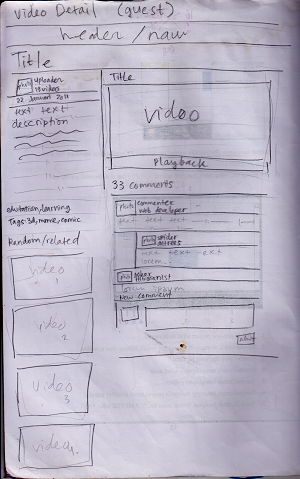 Video Detail (guest)
header/nav
Title
photo uploader
19 video
22 Januari 2011
text text
description
edutation, learning
Tags: 3d, movie, comic
Random/related
video
video
2
video
3
video
Title
video
Playback
33 comments
photo commenter
web developer
text text text
photo
text text text
lorem
photo
lorem ipsum
New comment